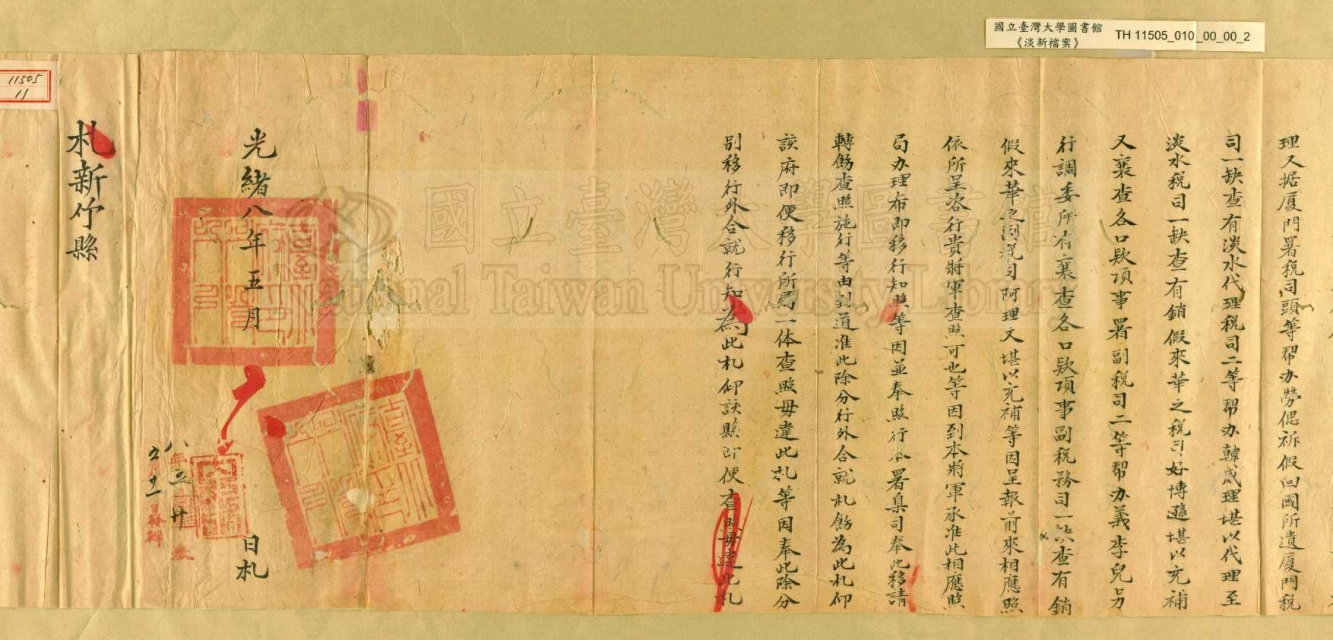 國立臺灣大學圖書館
《淡新檔案》
TH 11505_010_00_00_2
理又据厦門署税司頭等帮办勞偲祈假回國所遺厦門税
司一缺查有淡水代理税司二等帮办韓威理堪以代理至
淡水税司一缺查有銷假來華之税司好博遜堪以充補
又襄查各口欵項事署副税司二等帮办義李兒另
行調委所有襄查各口欵項事副税務司一缺查有銷
假來華之副税司阿理文堪以充補等因呈報前來相應照
依所呈咨行貴將軍查照可也等因到本將軍承准此相應照
局办理布即移行知照等因並奉照行本署臬司奉此移請
轉飭查照施行等由到道准此除分行外合就札飭為此札仰
該府即便移行所局一体查照毋違此札等因奉此除分
别移行外合就行知為此札仰該縣即便查照毋違此札
光緒八年五月
日札
札新竹縣
11505
11
國立臺灣大學圖書館
National Taiwan University Library